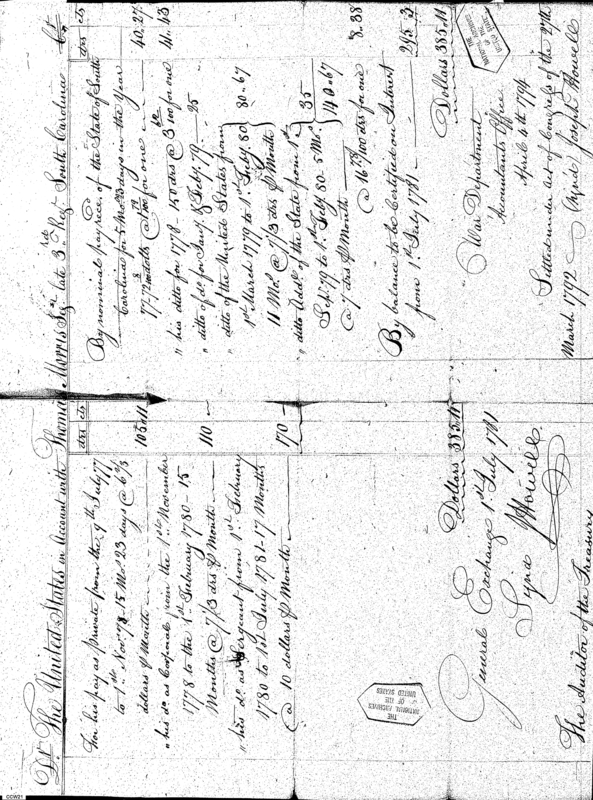 Dr. The United States in Account with Thomas Morris Sejt. late 3rd Regt. South Carolina Cr.
dlrs cts
For his pay as private from the 9th July 77
to 1st Novr. 78 15 Mos 23 days @ 6 2/3
dollars P Month 105.11
" his do as Corporal from the 1st November
1778 to the 1st February 1780 - 15
Months @ 7 1/3 drs P Month 110
" his do as Sergeant from 1st February
1780 to 1st July 1781 - 17 Months
@ 10 dollars P Month 170
Dollars 385.11
General Exchange 1st July 1781
Signd JHowell
The Auditor of the Treasury
THE
NATIONAL ARCHIVES
OF THE
UNITED STATES
dlrs cts
By nominal pay recd. of the State of South
Carolina for 5 Mos 23 days in the Year
1777 for one 40.27
" his ditto for 1778 - 150 drs @ 3 for one 41.43
" ditto of do for Jany. & Feby. 79 - 25
" ditto of the United States from
1st March 1779 to 1st Feby. 80
11 Mos. @ 7 1/3 drs P Month 80.67
" ditto Addl of the State from 1st
Sept 79 to 1st Feby. 80 - 5 Mos.
@ 7 drs P Month 35
140.67
for one 8.38
By balance to be Certified on Interest
from 1st July 1781 295.3
Dollars 385.11
THE
NATIONAL ARCHIVES
OF THE
UNITED STATES
War Department
Accountants Office
April 4th 1794
Settled under Act of Congress of the 27th
March 1792 Signd Joseph Howell
CCW21